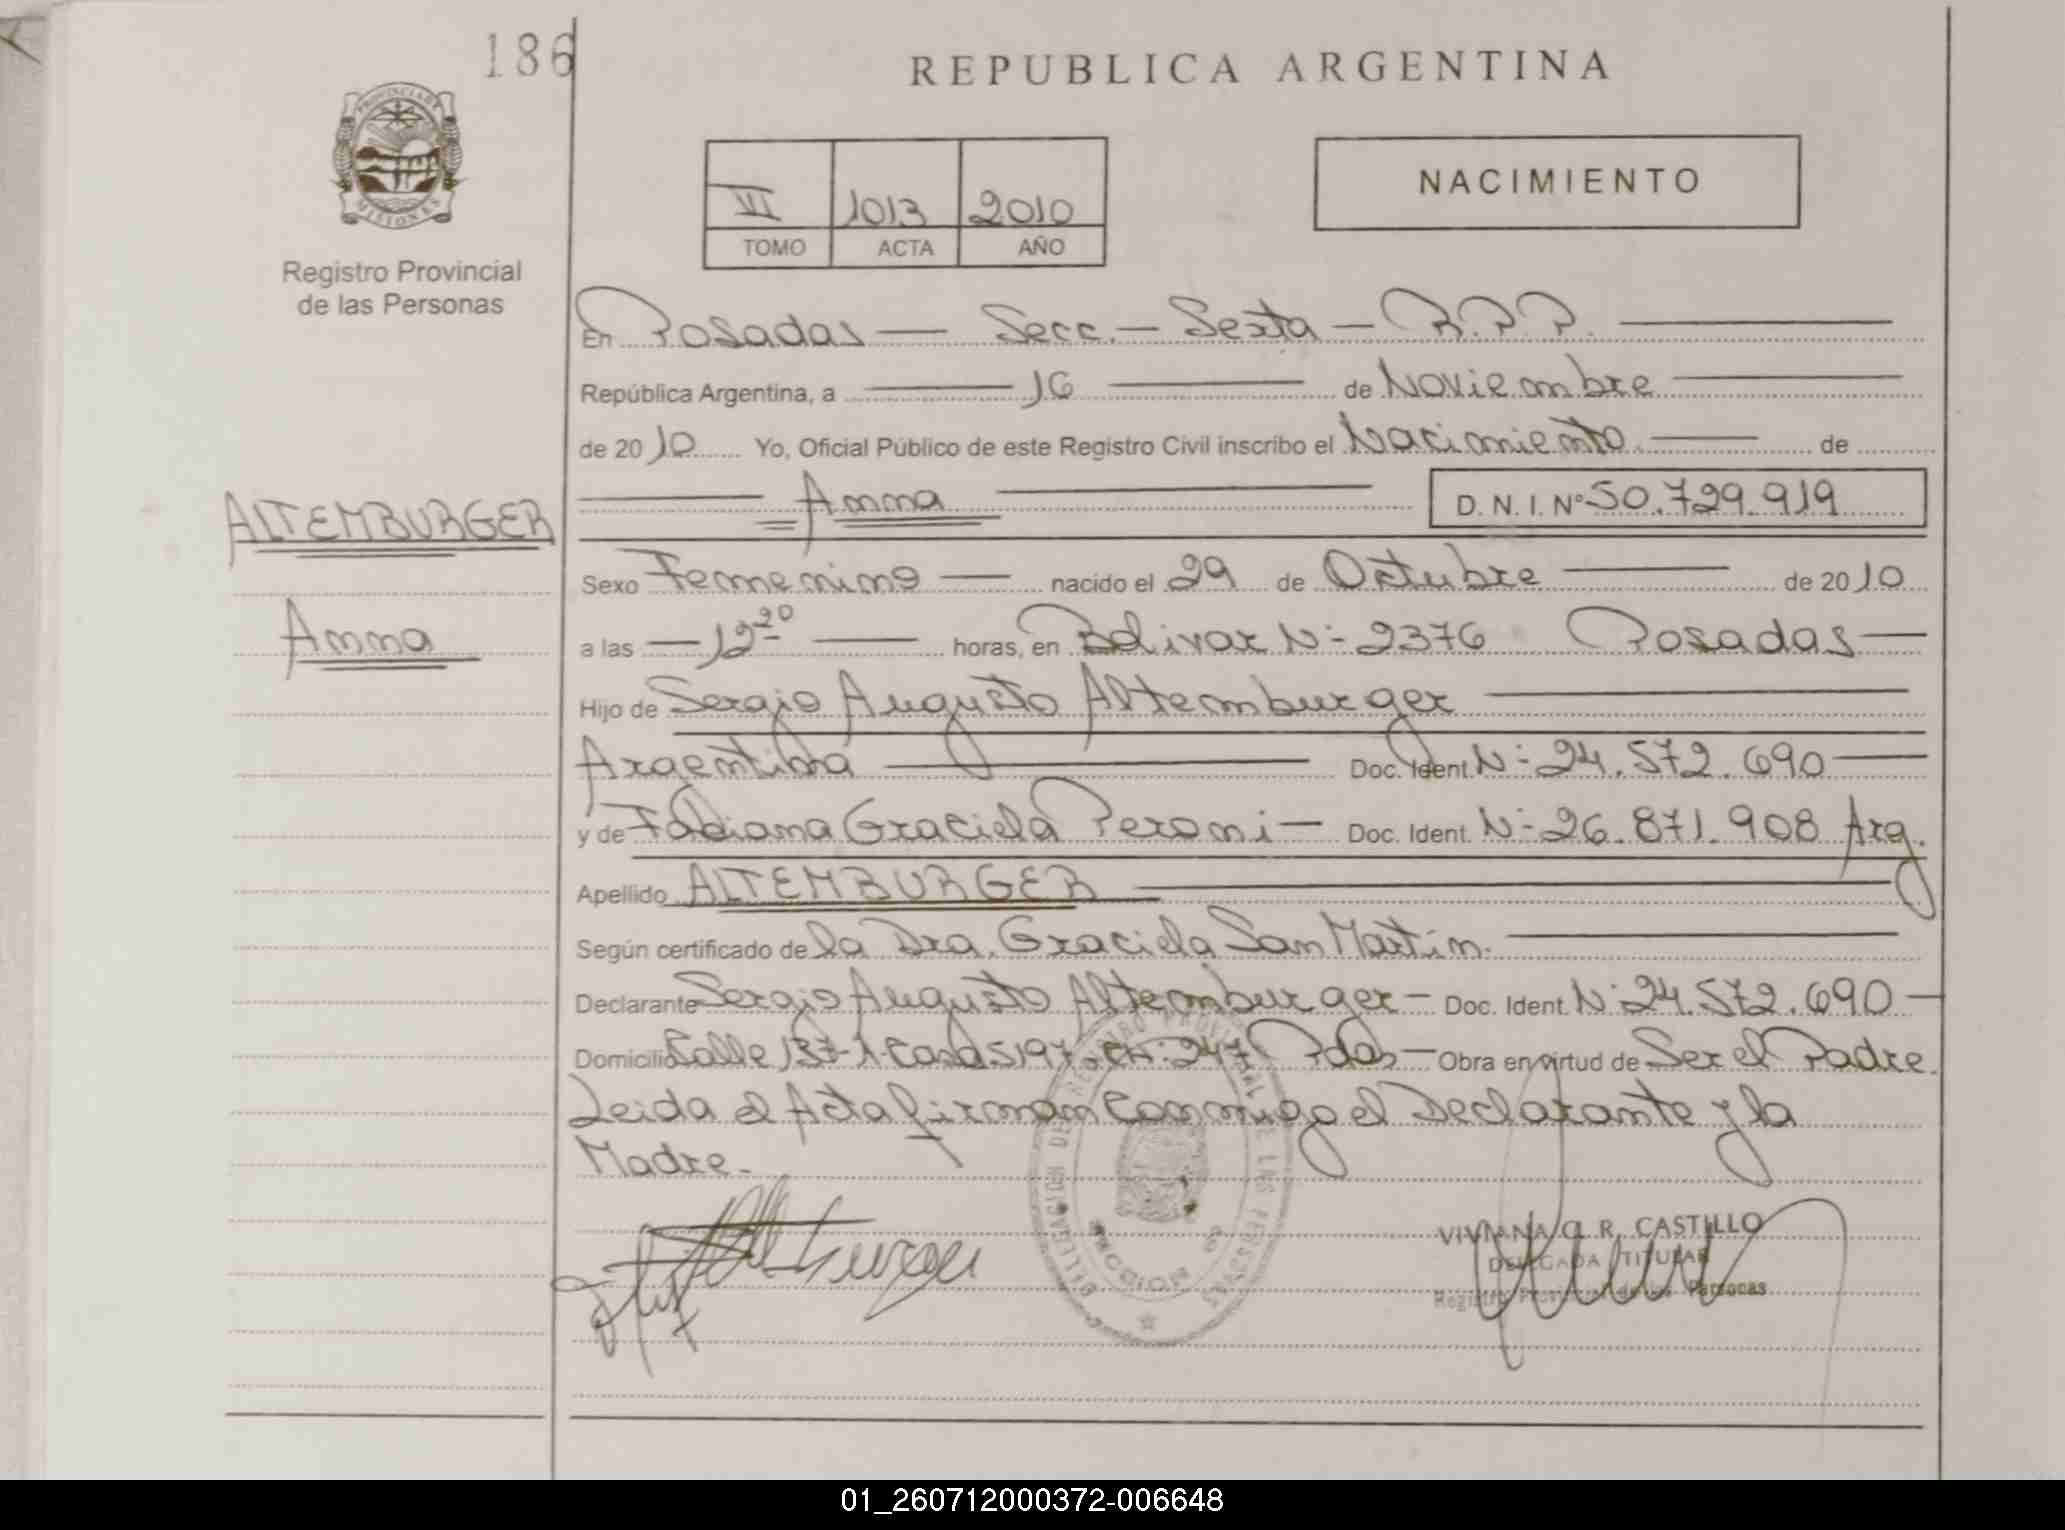 186
REPUBLICA ARGENTINA
PROVINCIA DE
MISIONES
Registro Provincial
de las Personas
VI 1013 2010
TOMO ACTA AÑO
NACIMIENTO
En Posadas — Secc. — Sexta — R.P.P.
República Argentina, a 16 de Noviembre
de 2010 Yo, Oficial Público de este Registro Civil inscribo el Nacimiento de
Anna D. N. I. Nº 50.729.919
ALTEMBURGER
Anna
Sexo Femenino nacido el 29 de Octubre de 2010
a las 12 20 horas, en Bolivar Nº 2376 Posadas
Hijo de Sergio Augusto Altemburger
Argentina Doc. Ident. Nº 24.572.690
y de Fabiana Graciela Peroni — Doc. Ident. Nº 26.871.908 Arg.
Apellido ALTEMBURGER
Según certificado de la Dra. Graciela San Martin.
Declarante Sergio Augusto Altemburger — Doc. Ident. Nº 24.572.690
Domicilio Calle 137-A-Casa 5197. CH: 247 Pdas — Obra en virtud de Ser el Padre.
Leida el Acta firman Conmigo el Declarante y la
Madre.
DELEGACION DEL REGISTRO PROVINCIAL DE LAS PERSONAS
SECCION 6ª
VIVIANA C. R. CASTILLO
DELEGADA TITULAR
Registro Provincial de las Personas
01_260712000372-006648